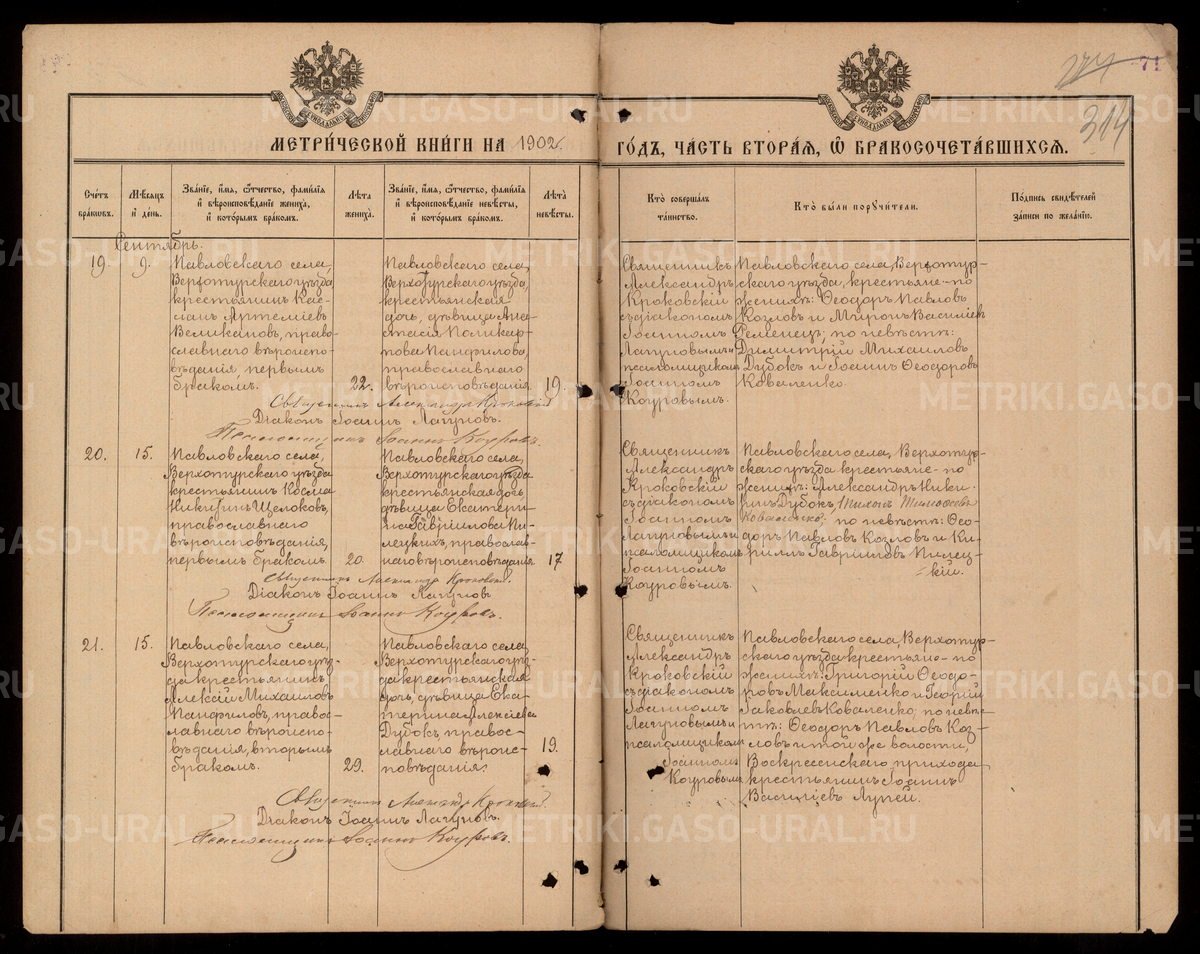 71
314
МЕТРИ́ЧЕСКОЙ КНИ́ГИ НА 1902
ГО́ДЪ, ЧА́СТЬ ВТОРА́Я, Ѡ БРАКОСОЧЕТА́ВШИХСЯ.
Сче́тъ бра́ковъ.
Мѣ́сяцъ и де́нь.
Зва́нїе, и́мя, ѻ́тчество, фами́лїя и вѣроисповѣ́данїе жениха̀, и кото́рымъ бра́комъ.
Лѣ́та жениха̀.
Зва́нїе, и́мя, ѻ́тчество, фами́лїя и вѣроисповѣ́данїе невѣ́сты, и кото́рымъ бра́комъ.
Лѣ́та невѣ́сты.
Кто̀ соверша́лъ та́инство.
Кто̀ бы́ли поручи́тели.
По́дпись свидѣ́телей за́писи по жела́нїю.
Сентябрь.
19.
9.
Павловскаго села,
Верхотурскаго уѣзда,
крестьянинъ Кас-
сіанъ Артеміевъ
Великановъ, право-
славнаго вѣроиспо-
вѣданія первымъ
бракомъ.
22.
Павловскаго села,
Верхотурскаго уѣзда,
крестьянская
дочь, дѣвица Ана-
стасія Поликар-
пова Панфилова,
православнаго
вѣроисповѣданія
19.
Священникъ
Александръ
Кроковскій
съ діакономъ
Іоанномъ
Лагуновымъ и
псаломщикомъ
Іоанномъ
Коуровымъ.
Павловскаго села, Верхотур-
скаго уѣзда, крестьяне - по
женихѣ: Ѳеодоръ Павловъ
Козловъ и Миронъ Васильевъ
Ременецъ; по невѣстѣ:
Димитрій Михаиловъ
Дубокъ и Іоаннъ Ѳеодоровъ
Коваленко
Священникъ Александръ Кроковскій
Діаконъ Іоаннъ Лагуновъ.
Псаломщикъ Іоаннъ Коуровъ.
20.
15.
Павловскаго села,
Верхотурскаго уѣзда
крестьянинъ Косма
Никитинъ Щелоковъ,
православнаго
вѣроисповѣданія,
первымъ бракомъ.
20.
Павловскаго села,
Верхотурскаго уѣзда
крестьянская дочь,
дѣвица Екатери-
на Гавріилова Пи-
лецкихъ, православ-
наго вѣроисповѣданія
17
Священникъ
Александръ
Кроковскій
съ діакономъ
Іоанномъ
Лагуновымъ и
псаломщикомъ
Іоанномъ
Коуровымъ.
Павловскаго села, Верхотур-
скаго уѣзда крестьяне - по
женихѣ: Александръ Ники-
тинъ Дубокъ, Тихонъ Тимоѳеевъ
Коваленко; по невѣстѣ: Ѳео-
доръ Павловъ Козловъ и Ки-
риллъ Гавріиловъ Пилец-
кій.
Священникъ Александръ Кроковскій
Діаконъ Іоаннъ Лагуновъ
Псаломщикъ Іоаннъ Коуровъ.
21.
15.
Павловскаго села,
Верхотурскаго уѣз-
да крестьянинъ
Алексій Михаиловъ
Панфиловъ, правос-
лавнаго вѣроиспо-
вѣданія, вторымъ
бракомъ.
29.
Павловскаго села,
Верхотурскаго уѣз-
да крестьянская
дочь, дѣвица Ека-
терина Алексіева
Дубокъ правос-
лавнаго вѣроис-
повѣданія.
19.
Священникъ
Александръ
Кроковскій
съ діакономъ
Іоанномъ
Лагуновымъ и
псаломщикомъ
Іоанномъ
Коуровымъ
Павловскаго села, Верхотур-
скаго уѣзда крестьяне - по
женихѣ: Григорій Ѳеодо-
ровъ Максименко и Георгій
Іаковлевъ Коваленко; по невѣс-
тѣ: Ѳеодоръ Павловъ Коз-
ловъ и той же волости,
Воскресенскаго прихода
крестьянинъ Іоаннъ
Васильевъ Лупей.
Священникъ Александръ Кроковскій
Діаконъ Іоаннъ Лагуновъ.
Псаломщикъ Іоаннъ Коуровъ.
METRIKI.GASO-URAL.RU